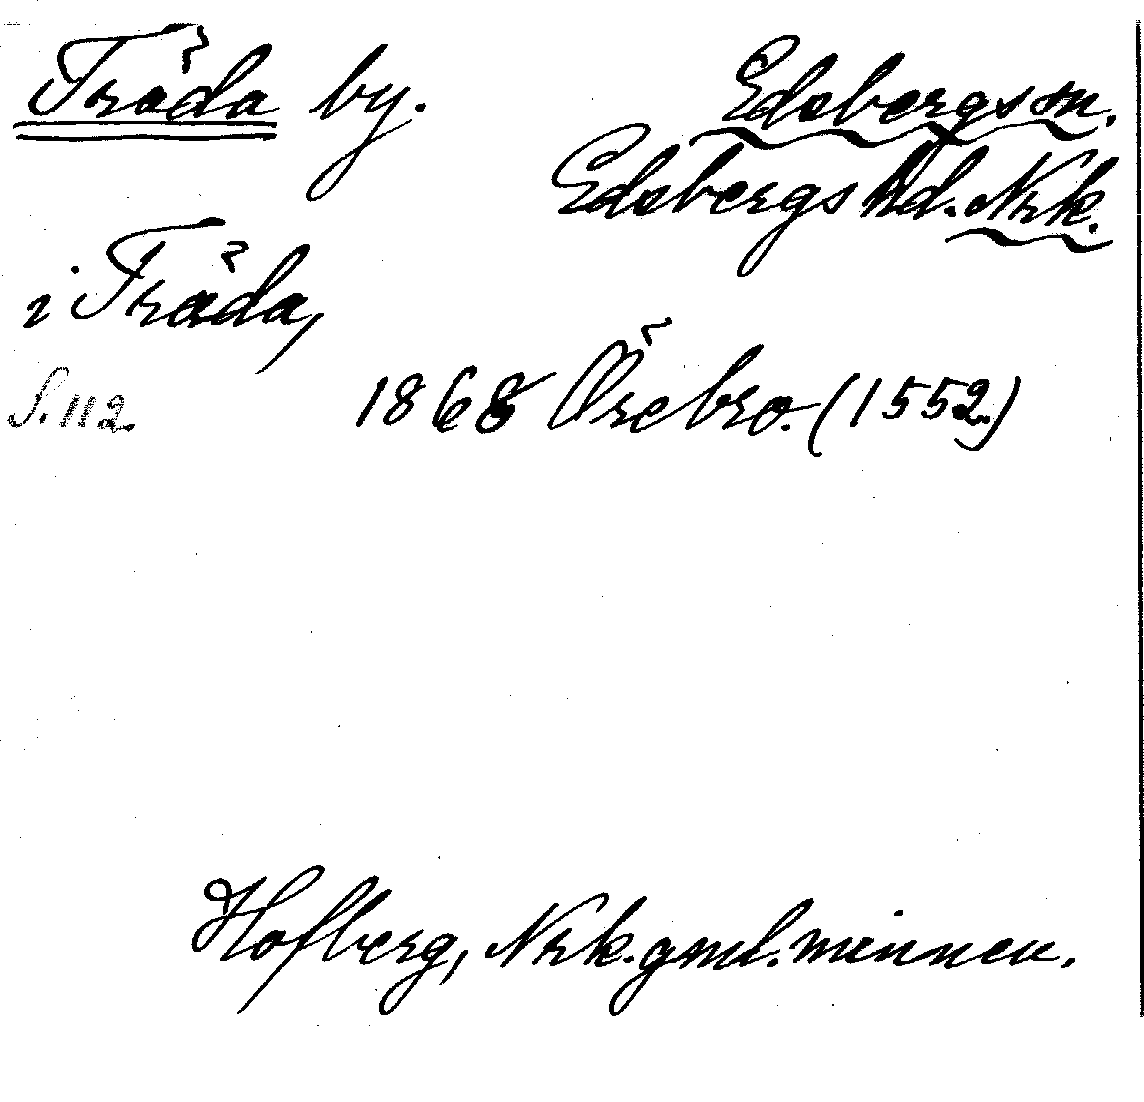 Tråda by. Edsbergs sn.
Edsbergs hd. Nrk.
i Tråda,
S. 112. 1868 Örebro. (1552.)
Hofberg, Nrk. gml. minnen.